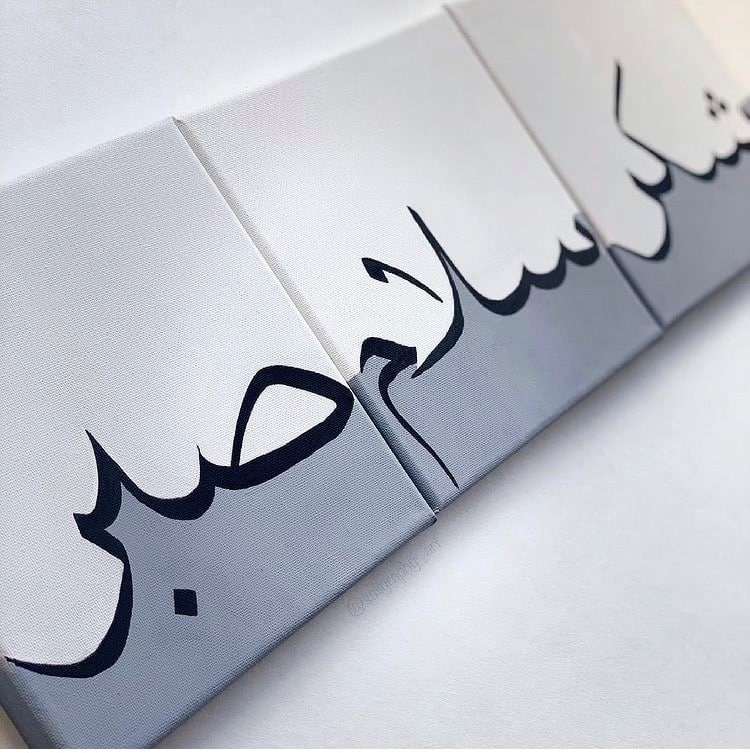 شكر
سلام
صبر